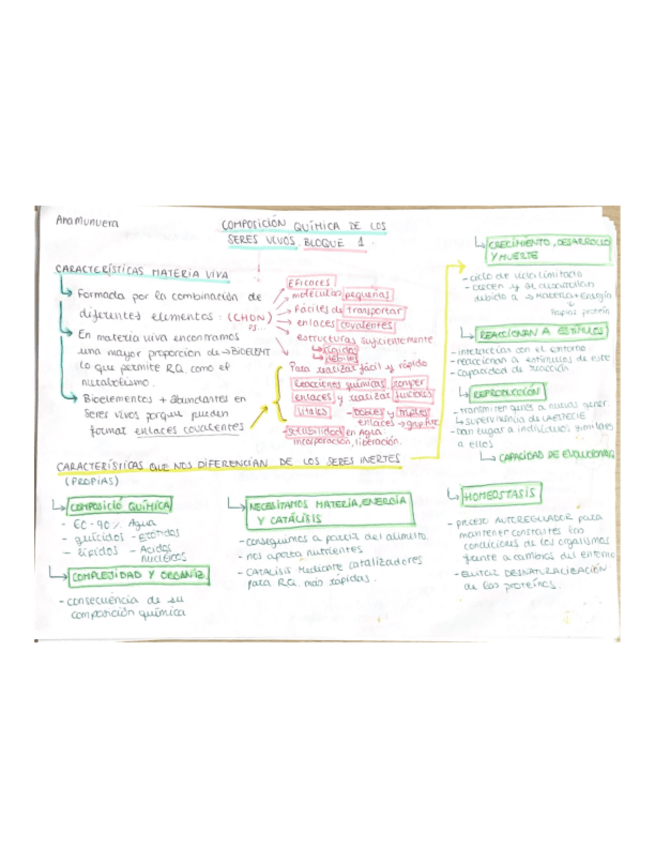 Ana Munuera
COMPOSICIÓN QUÍMICA DE LOS
SERES VIVOS. BLOQUE 1.
CARACTERÍSTICAS MATERIA VIVA
Formada por la combinación de
diferentes elementos: (CHON)
PS...
En materia viva encontramos
una mayor proporción de → BIOELEMT
lo que permite RQ como el
metabolismo.
Bioelementos + abundantes en
seres vivos porque pueden
formar enlaces covalentes
Eficaces
moléculas pequeñas
Fáciles de transportar
enlaces covalentes
estructuras suficientemente
rígidas
débiles
Para realizar fácil y rápido
Reacciones químicas, romper
enlaces y realizar funciones
vitales
- Dobles y triples
enlaces →
- Solubilidad en Agua
incorporación, liberación.
CARACTERÍSTICAS QUE NOS DIFERENCIAN DE LOS SERES INERTES
(PROPIAS)
COMPOSICIÓ QUÍMICA
- 60-90% Agua
- glúcidos - Prótidos
- lípidos - Ácidos
nucleicos
COMPLEJIDAD Y ORGANIZ.
- consecuencia de su
composición química
NECESITAMOS MATERIA, ENERGÍA
Y CATÁLISIS
- conseguimos a partir del alimento
- nos aporta nutrientes
- CATÁLISIS Mediante catalizadores
para R.Q. más rápidas.
CRECIMIENTO, DESARROLLO
Y MUERTE
- ciclo de vida limitado
- crecen y se desarrollan
debido a → MATERIA + Energía
proteín
REACCIONAN A ESTÍMULOS
- interactúan con el entorno
- reaccionan a estímulos de este
- capacidad de reacción
REPRODUCCIÓN
- transmiten genes a nuevas gener.
↳ supervivencia de LA ESPECIE
- Dan lugar a individuos similares
a ellos
↳ CAPACIDAD DE EVOLUCIONAR
HOMEOSTASIS
- PROCESO AUTOREGULADOR para
mantener constantes las
condiciones de los organismos
frente a cambios del entorno
- EVITAR DESNATURALIZACIÓN
de las proteínas.